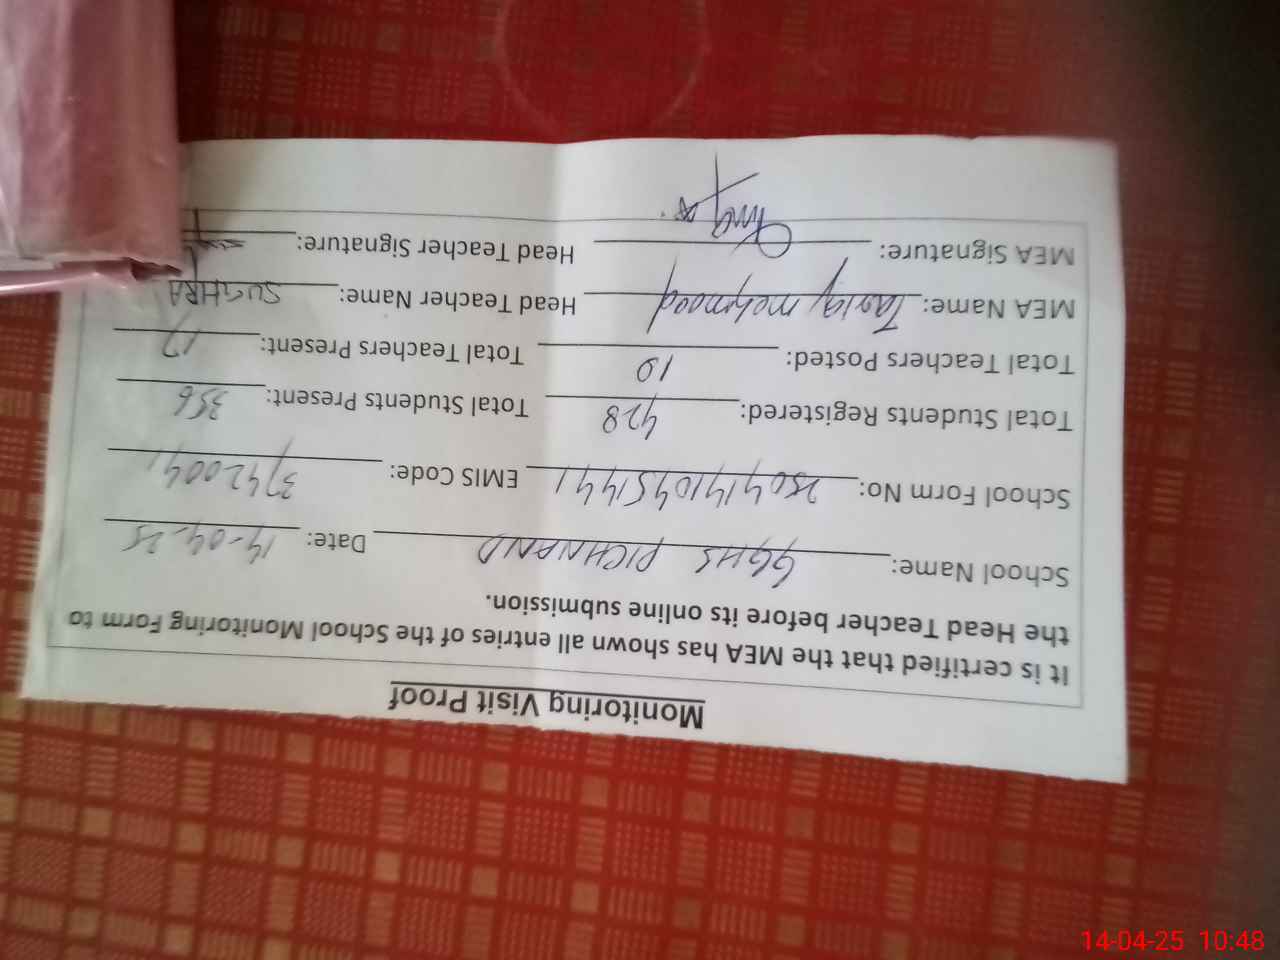 Monitoring Visit Proof
It is certified that the MEA has shown all entries of the School Monitoring Form to
the Head Teacher before its online submission.
School Name: GGHS PICHNAND Date: 14-04-25
School Form No: 25041410451441 EMIS Code: 37420041
Total Students Registered: 428 Total Students Present: 356
Total Teachers Posted: 19 Total Teachers Present: 17
MEA Name: Tariq mehmood Head Teacher Name: SUGHRA
MEA Signature: Head Teacher Signature:
14-04-25 10:48